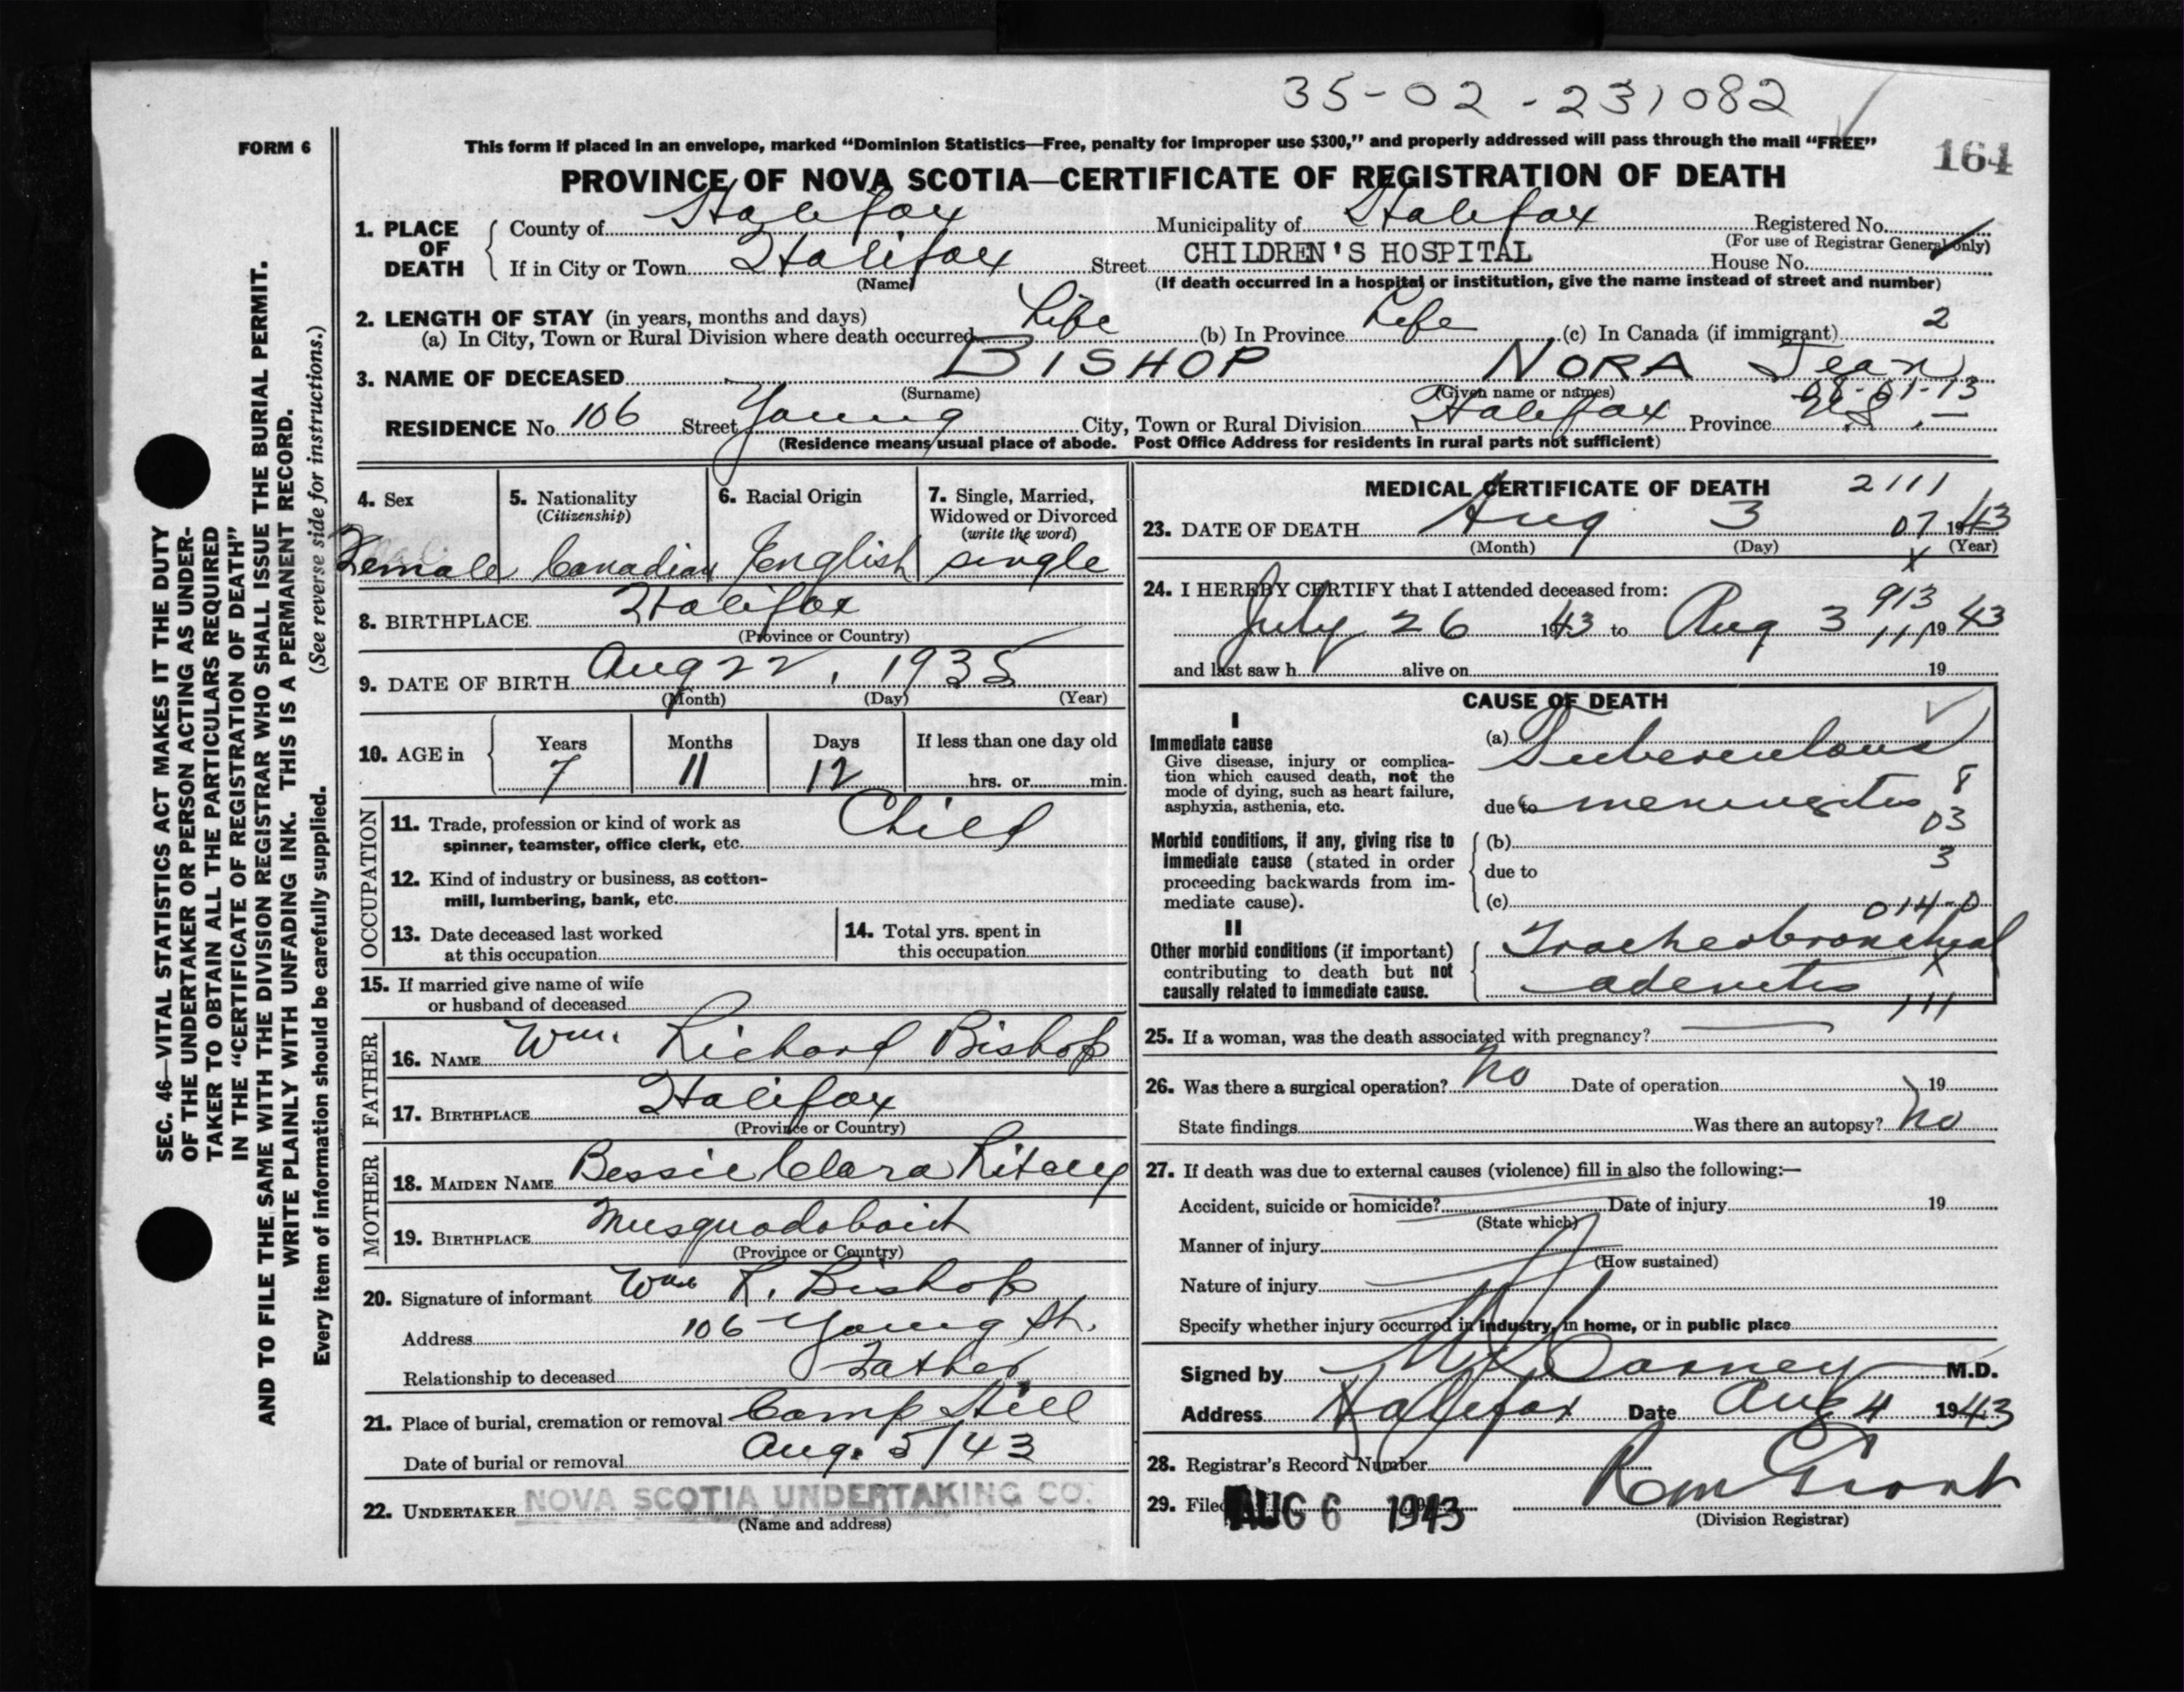 35-02-231082
FORM 6
This form if placed in an envelope, marked "Dominion Statistics—Free, penalty for improper use $300," and properly addressed will pass through the mail "FREE"
164
PROVINCE OF NOVA SCOTIA—CERTIFICATE OF REGISTRATION OF DEATH
1. PLACE OF DEATH
County of Halifax Municipality of Halifax Registered No.
(For use of Registrar General only)
If in City or Town Halifax Street CHILDREN'S HOSPITAL House No.
(Name) (If death occurred in a hospital or institution, give the name instead of street and number)
2. LENGTH OF STAY (in years, months and days)
(a) In City, Town or Rural Division where death occurred Life (b) In Province Life (c) In Canada (if immigrant) 2
3. NAME OF DECEASED BISHOP NORA Jean
(Surname) (Given name or names) 08-01-13
RESIDENCE No. 106 Street Young City, Town or Rural Division Halifax Province N.S.
(Residence means usual place of abode. Post Office Address for residents in rural parts not sufficient)
4. Sex
Female
5. Nationality
(Citizenship)
Canadian
6. Racial Origin
English
7. Single, Married,
Widowed or Divorced
(write the word)
single
8. BIRTHPLACE Halifax
(Province or Country)
9. DATE OF BIRTH Aug 22, 1935
(Month) (Day) (Year)
10. AGE in
Years Months Days If less than one day old
7 11 12 hrs. or min.
OCCUPATION
11. Trade, profession or kind of work as
spinner, teamster, office clerk, etc. Child
12. Kind of industry or business, as cotton-
mill, lumbering, bank, etc.
13. Date deceased last worked
at this occupation
14. Total yrs. spent in
this occupation
15. If married give name of wife
or husband of deceased
FATHER
16. NAME Wm. Richard Bishop
17. BIRTHPLACE Halifax
(Province or Country)
MOTHER
18. MAIDEN NAME Bessie Clara
19. BIRTHPLACE Musquodoboit
(Province or Country)
20. Signature of informant Wm R. Bishop
Address 106 Young St.
Relationship to deceased Father
21. Place of burial, cremation or removal Camp Hill
Date of burial or removal Aug. 5/43
22. UNDERTAKER NOVA SCOTIA UNDERTAKING CO.
(Name and address)
MEDICAL CERTIFICATE OF DEATH 2111
23. DATE OF DEATH Aug 3 07 1943
(Month) (Day) (Year)
x
24. I HEREBY CERTIFY that I attended deceased from:
913
July 26 1943 to Aug 3 11, 1943
and last saw h alive on 19
CAUSE OF DEATH
I
Immediate cause
Give disease, injury or complica-
tion which caused death, not the
mode of dying, such as heart failure,
asphyxia, asthenia, etc.
(a) Tuberculous
8
due to meningitis
03
Morbid conditions, if any, giving rise to
immediate cause (stated in order
proceeding backwards from im-
mediate cause).
(b)
due to 3
(c) 014-0
II
Other morbid conditions (if important)
contributing to death but not
causally related to immediate cause.
Tracheobronchial
x
adenitis
111
25. If a woman, was the death associated with pregnancy?
26. Was there a surgical operation? No Date of operation 19
State findings Was there an autopsy? No
27. If death was due to external causes (violence) fill in also the following:—
Accident, suicide or homicide? Date of injury 19
(State which)
Manner of injury
(How sustained)
Nature of injury
Specify whether injury occurred in industry, in home, or in public place
Signed by Carney M.D.
Address Halifax Date Aug 4 1943
28. Registrar's Record Number
29. Filed AUG 6 1943 Grant
(Division Registrar)
SEC. 46—VITAL STATISTICS ACT MAKES IT THE DUTY
OF THE UNDERTAKER OR PERSON ACTING AS UNDER-
TAKER TO OBTAIN ALL THE PARTICULARS REQUIRED
IN THE "CERTIFICATE OF REGISTRATION OF DEATH"
AND TO FILE THE SAME WITH THE DIVISION REGISTRAR WHO SHALL ISSUE THE BURIAL PERMIT.
WRITE PLAINLY WITH UNFADING INK. THIS IS A PERMANENT RECORD.
Every item of information should be carefully supplied. (See reverse side for instructions.)